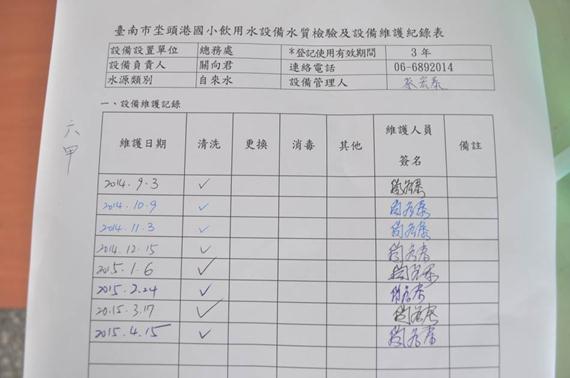 臺南市坔頭港國小飲用水設備水質檢驗及設備維護紀錄表
設備設置單位 總務處 *登記使用有效期間 3 年
設備負責人 關向君 連絡電話 06-6892014
水源類別 自來水 設備管理人
一、設備維護記錄
六甲
維護日期 清洗 更換 消毒 其他 維護人員簽名 備註
2014.9.3 ✓
2014.10.9 ✓
2014.11.3 ✓
2014.12.15 ✓
2015.1.6 ✓
2015.2.24 ✓
2015.3.17 ✓
2015.4.15 ✓